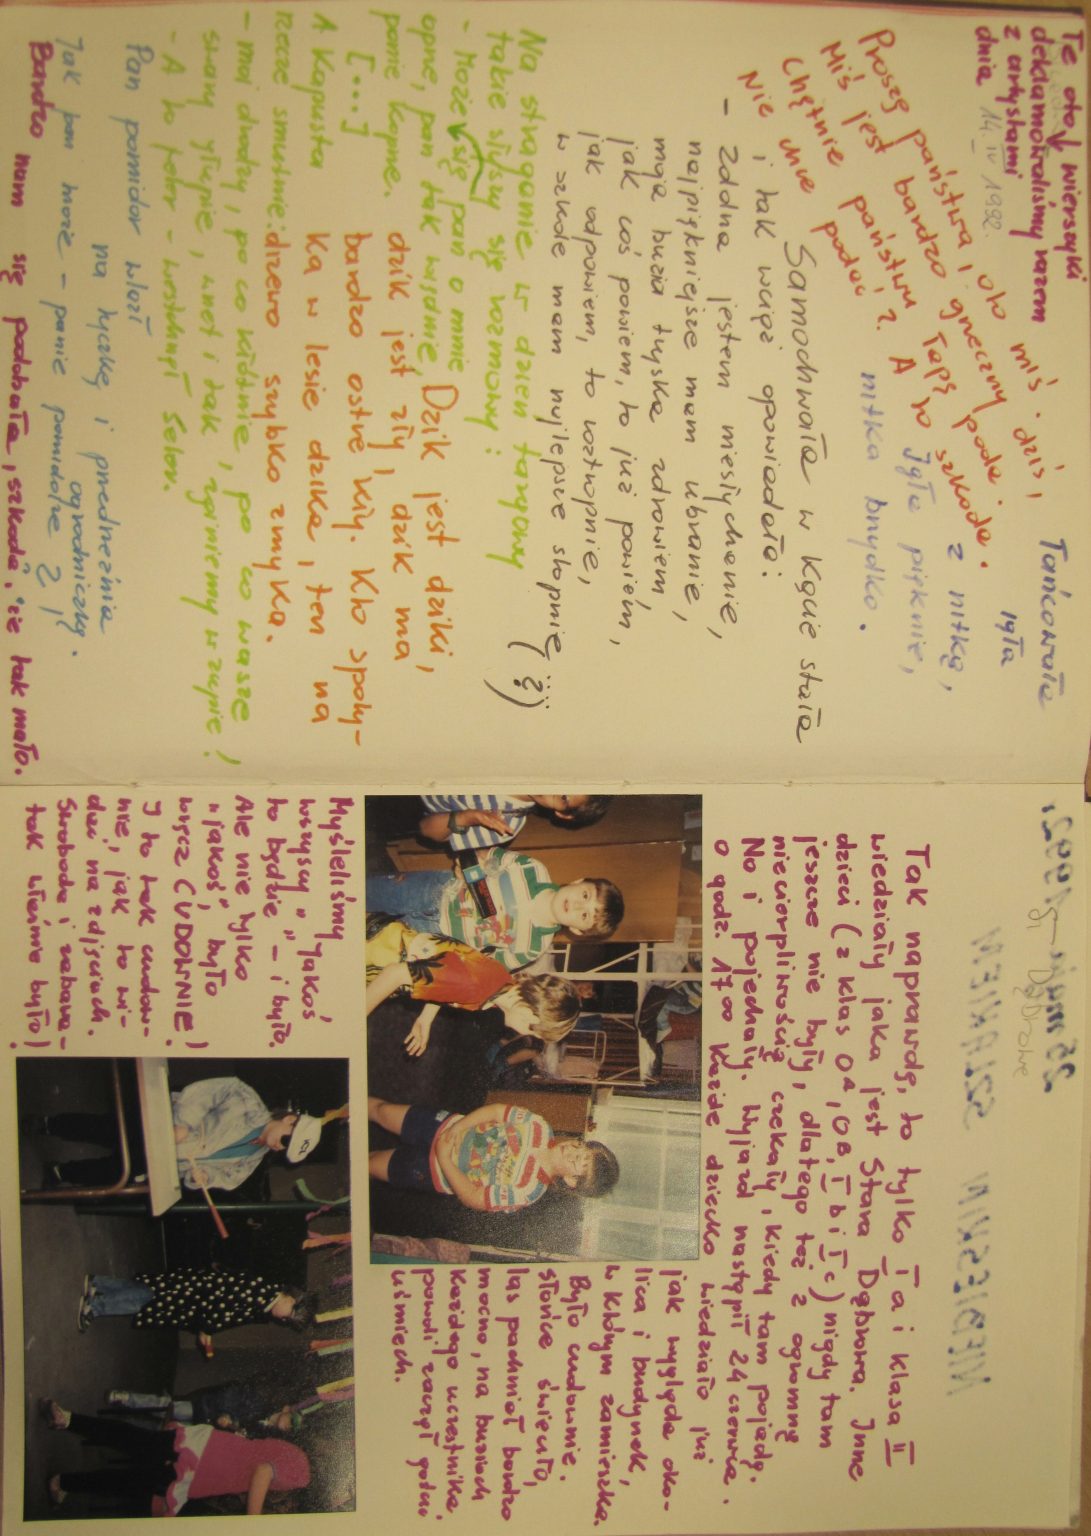 Te oto wierszyki
deklamowaliśmy razem
z artystami
dnia 14. IV 1992.
Proszę państwa, oto miś.
Miś jest bardzo grzeczny dziś,
Chętnie państwu łapę poda.
Nie chce podać? A to szkoda.
Tańcowała
igła
z nitką,
Igła pięknie,
nitka brzydko.
Samochwała w kącie stała
i tak wciąż opowiadała:
- Zdolna jestem niesłychanie,
najpiękniejsze mam ubranie,
moja buzia tryska zdrowiem
jak coś powiem, to już powiem,
jak odpowiem, to roztropnie,
w szkole mam najlepsze stopnie
(...?)
Na straganie w dzień targowy
takie słyszy się rozmowy:
- Może się pan o mnie
oprze, pan tak więdnie,
panie koprze.
[...]
A Kapusta
rzecze smutnie:
- moi drodzy, po co kłótnie, po co wasze
swary głupie, wnet i tak zginiemy w zupie!
- A to feler - westchnął Seler.
Dzik jest dziki,
dzik jest zły, dzik ma
bardzo ostre kły. Kto spoty-
ka w lesie dzika, ten na
drzewo szybko zmyka.
Pan pomidor wlazł
na tyczkę i przedrzeźnia
ogrodniczkę.
Jak pan może - panie pomidorze ?!
Bardzo nam się podobało, szkoda, że tak mało.
Tak naprawdę, to tylko I a i klasa II
wiedziały jaka jest Stara Dąbrowa. Inne
dzieci (z klas OA, OB, I b i I c) nigdy tam
jeszcze nie były, dlatego też z ogromną
niecierpliwością czekały, kiedy tam pojadą.
No i pojechały. Wyjazd nastąpił 24 czerwca.
o godz. 17oo Każde dziecko wiedziało już
jak wygląda oko-
lica i budynek,
w którym zamieszka.
Było cudownie.
Słońce świeciło,
las pachniał bardzo
mocno, na buziach
każdego uczestnika
powoli zaczął gościć
uśmiech.
Myśleliśmy
wszyscy "Jakoś,
to będzie" - i było.
Ale nie tylko
"jakoś", było
wręcz CUDOWNIE!
I to tak cudow-
nie, jak to wi-
dać na zdjęciach.
Swoboda i zabawa -
tak właśnie było!